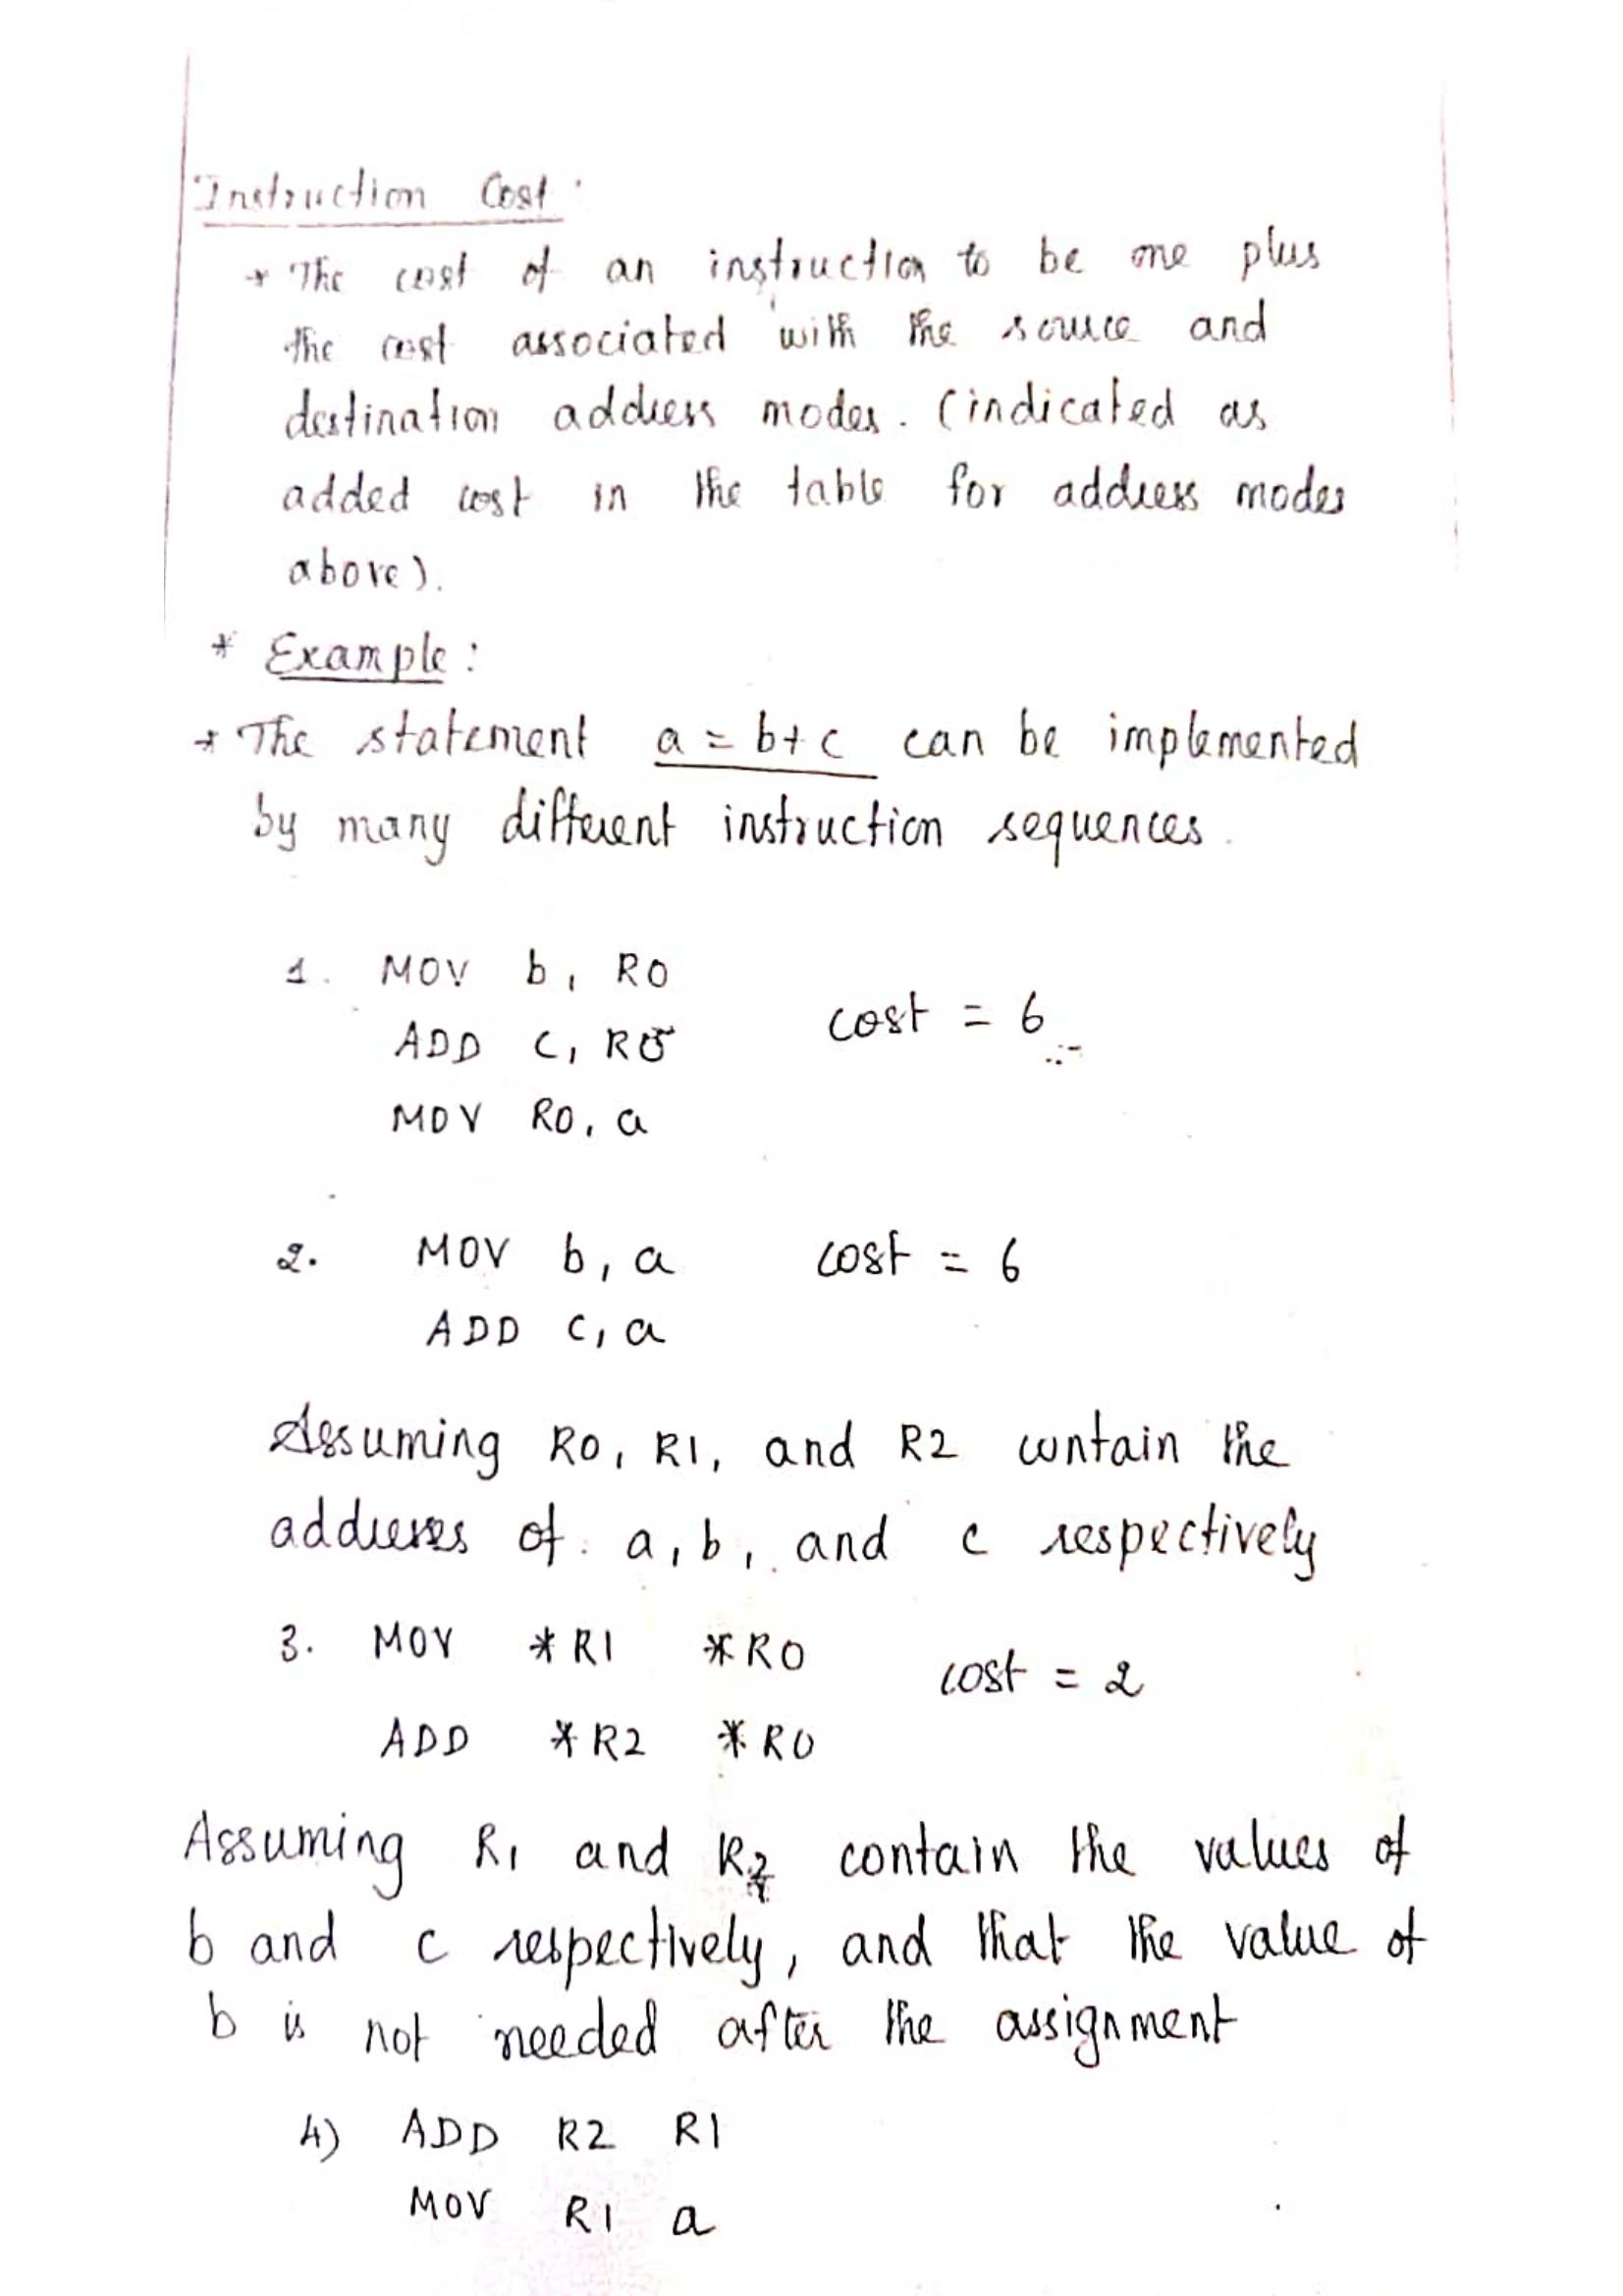 Instruction Cost:
* The cost of an instruction to be one plus
the cost associated with the source and
destination address modes. (indicated as
added cost in the table for address modes
above).
* Example:
* The statement a = b+c can be implemented
by many different instruction sequences.
1. MOV b, R0
ADD c, R0
cost = 6
MOV R0, a
2. MOV b, a cost = 6
ADD c, a
Assuming R0, R1, and R2 contain the
addresses of a, b, and c respectively
3. MOV *R1 *R0
cost = 2
ADD *R2 *R0
Assuming R1 and R2 contain the values of
b and c respectively, and that the value of
b is not needed after the assignment
4) ADD R2 R1
MOV R1 a